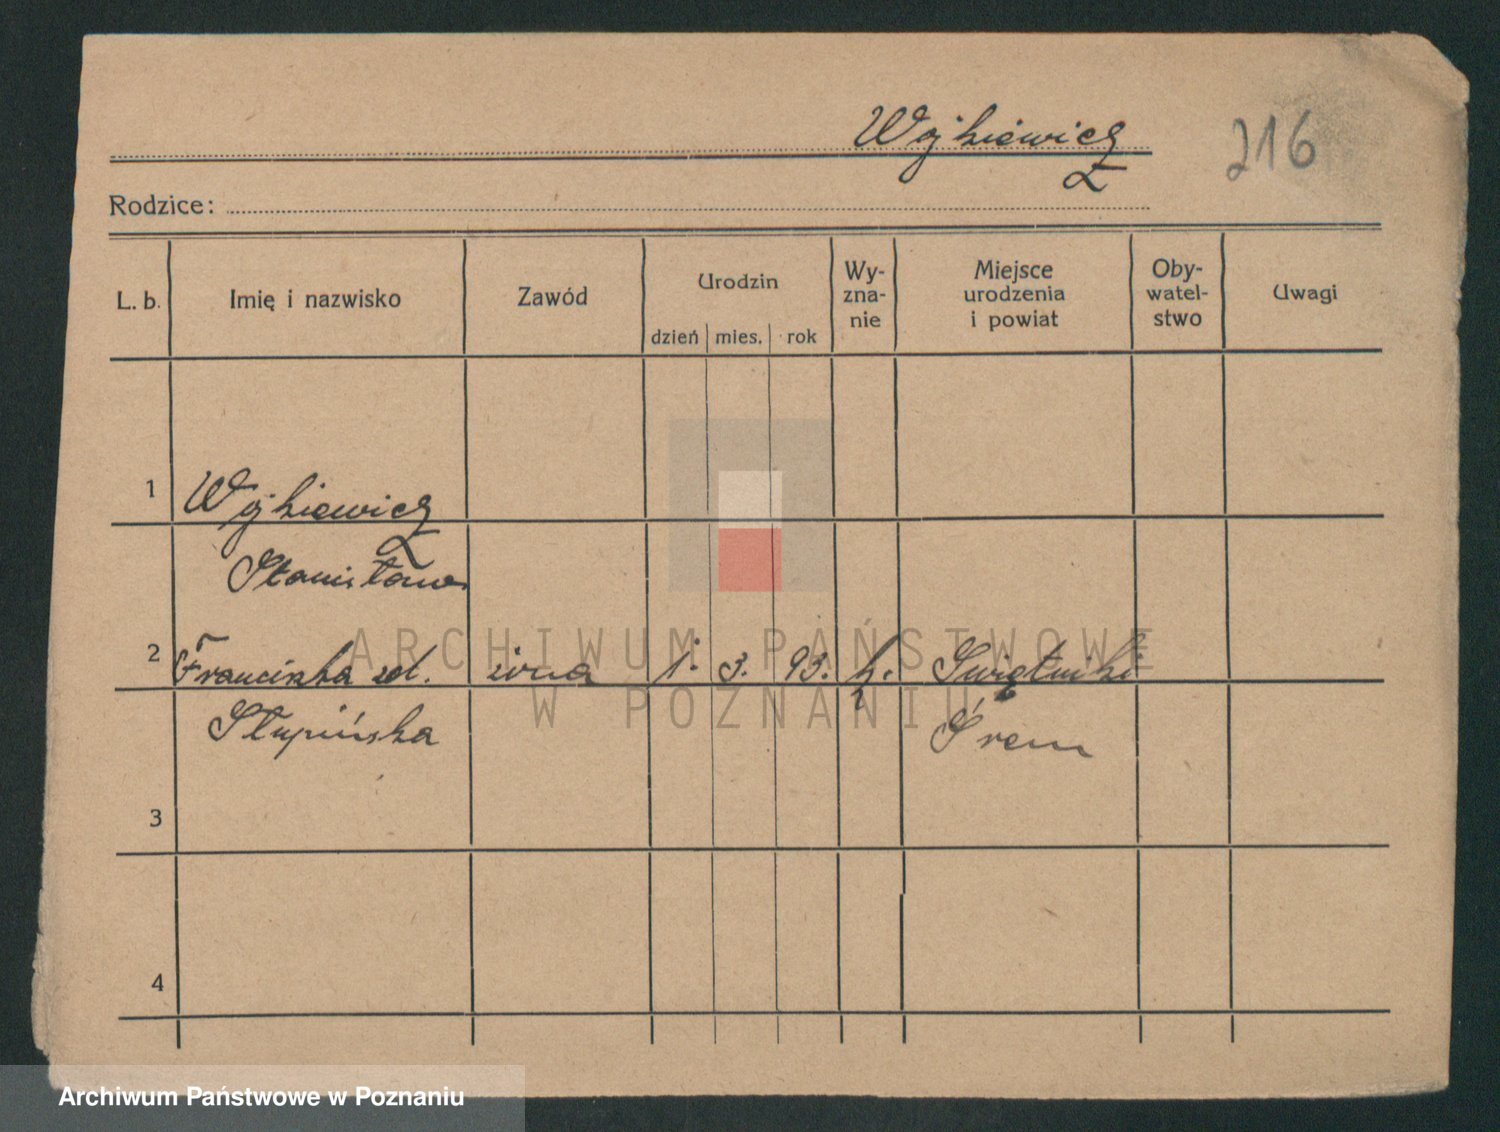 Wojkiewicz
216
Rodzice:
L. b.
Imię i nazwisko
Zawód
Urodzin
dzień mies. rok
Wy-
zna-
nie
Miejsce
urodzenia
i powiat
Oby-
watel-
stwo
Uwagi
1 Wojkiewicz
Stanisław
2 Franciszka zd. żona 1. 3. 93. k. Świątniki
Słupińska Śrem
3
4
ARCHIWUM PAŃSTWOWE
W POZNANIU
Archiwum Państwowe w Poznaniu